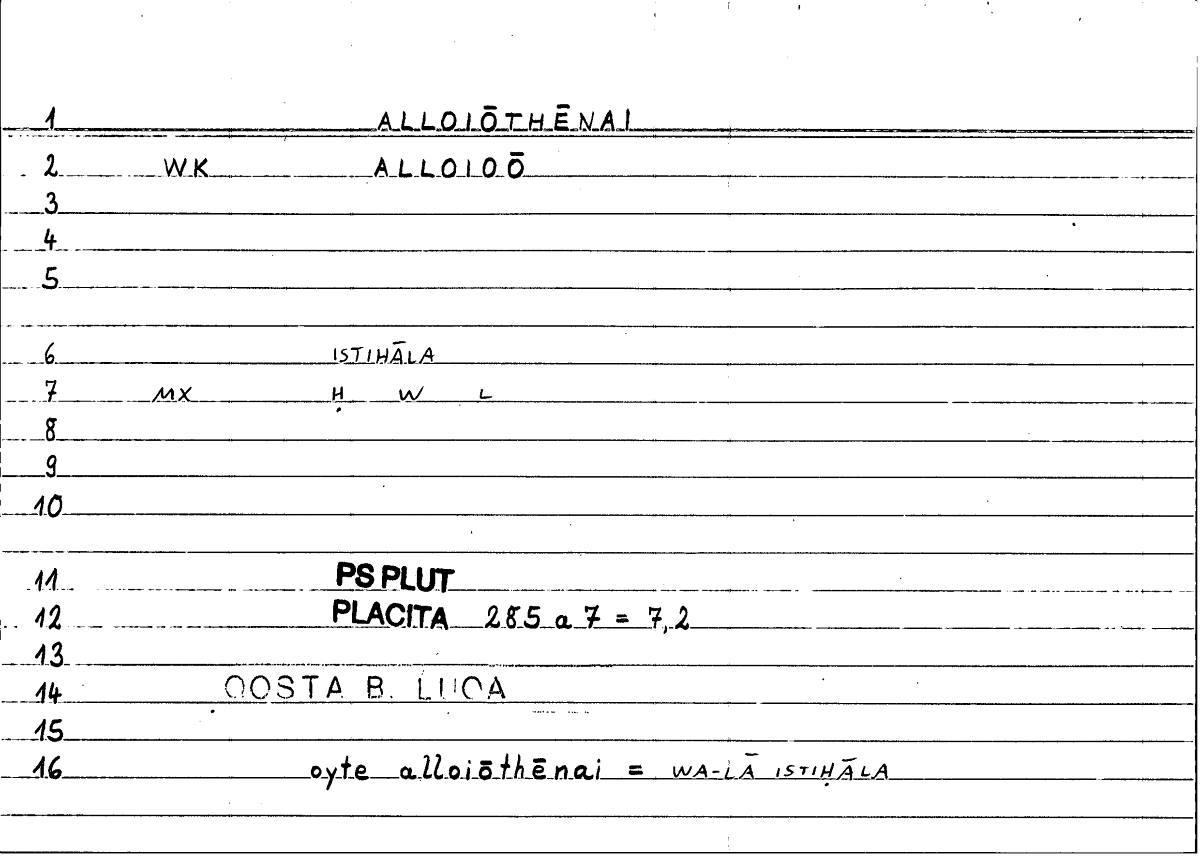 1 ALLOIŌTHĒNAI
2 WK ALLOIOŌ
3
4
5
6 ISTIHĀLA
7 MX Ḥ W L
8
9
10
11 PS PLUT
12 PLACITA 285 a 7 = 7,2
13
14 QOSTA B. LUQA
15
16 oyte alloiōthēnai = WA-LĀ ISTIḤĀLA